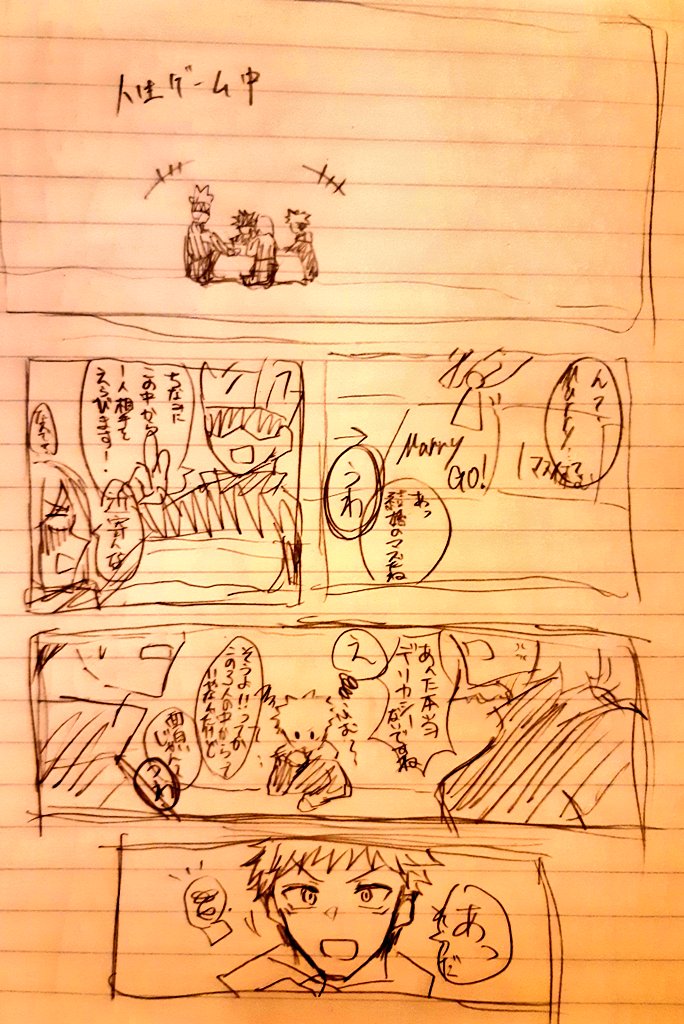 人生ゲーム中
んで、
Marry
マス
Marry
GO!
あっ
結婚のマスだね
うわ
ちなみに
この中から
一人相手を
えらびます!
なんで
あんた本当
デリカシー
ないですね
え
ふむ〜
そうよ!!ってか
この3人の中からって
いやなんだけど
面白い
じゃん
うわ
あっ